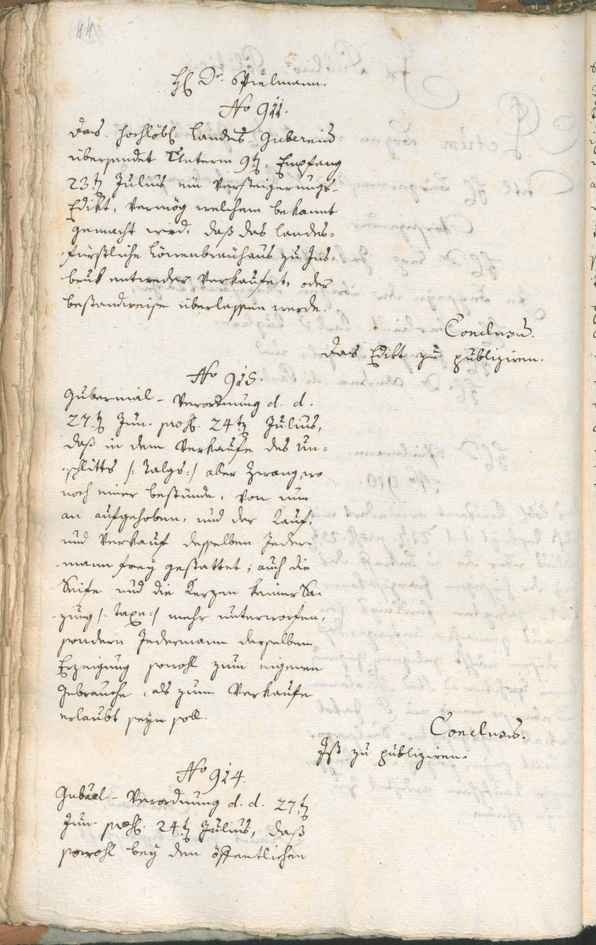 H: Dr. Spielmann.
No 911.
Das hochlöbl. Landes Gubernium
übersendet unterm 9t, Empfang
23t Julius ein Versteigerungs-
Edikt, vermög welchem bekannt
gemacht wird, daß das landes-
fürstliche Löwenbräuhaus zu Ins-
bruk entweder verkaufet, oder
bestandweise überlassen werde.
Conclusu.
Das Edikt zu publiziren.
No 915.
Gubernial-Verordnung d. d.
27t Jun. präs. 24t Julius,
daß in dem Verkaufe des Un-
schlitts /: Talgs :/ aller Zwang, wo
noch einer bestünde, von nun
an aufgehoben, und der Kauf,
und Verkauf desselben Jeder-
mann frey gestattet; auch die
Seife und die Kerzen keiner Sa-
zung /: Taxe :/ mehr unterworfen,
sondern Jedermann derselben
Erzeugung sowohl zum eigenen
Gebrauche, als zum Verkaufe
erlaubt seyn soll.
Conclusu.
Ist zu publiziren.
No 914.
Gubernal-Verordnung d. d. 27t
Jun. präs. 24t Julius, daß
sowohl bey den öffentlichen